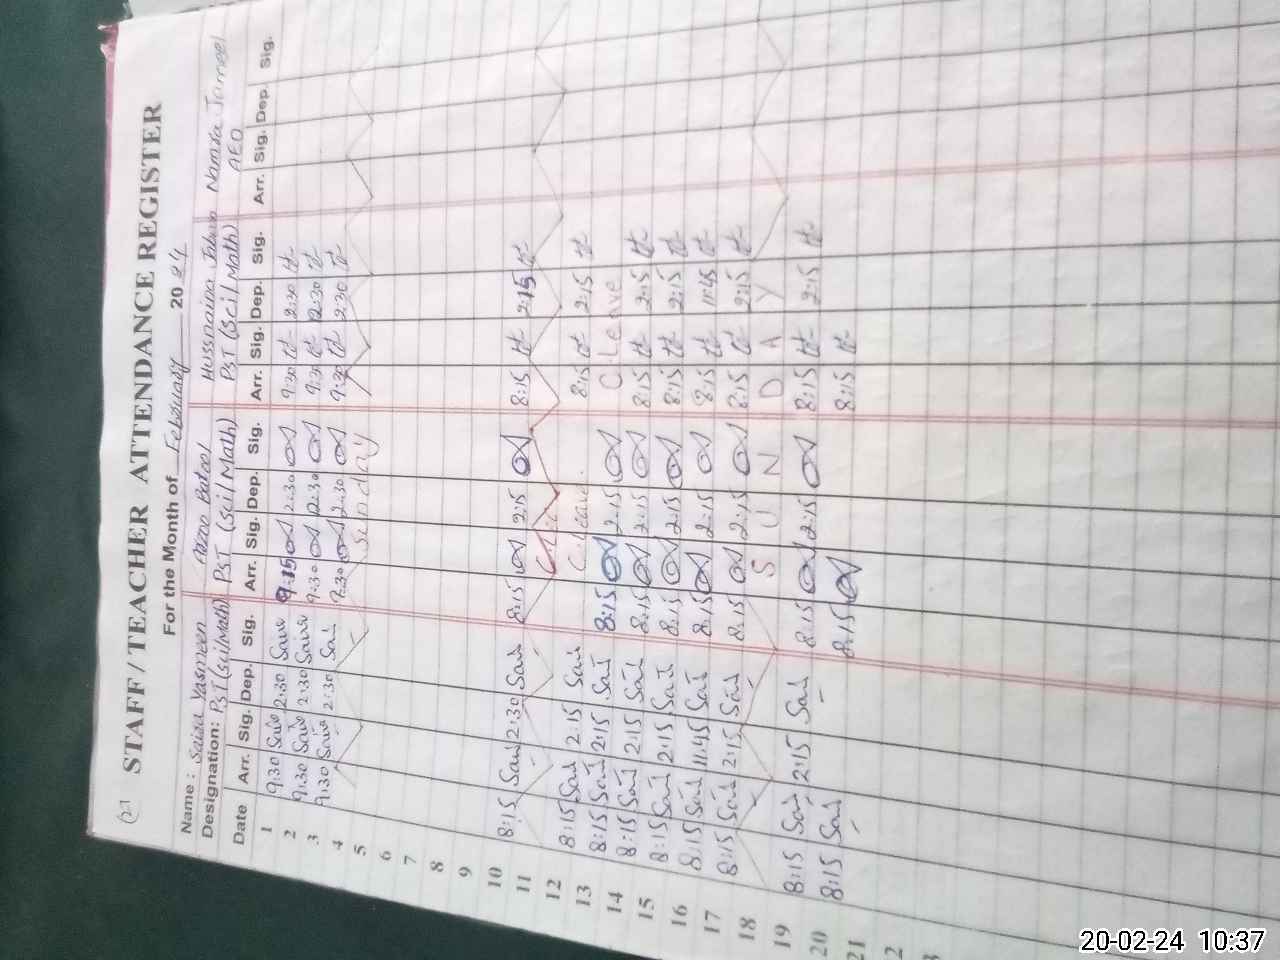 (2)
STAFF / TEACHER ATTENDANCE REGISTER
For the Month of February 2024
Name : Saira Yasmeen Arzoo Batool Hussnaina Namra Jameel
Designation: PST (Sci/Math) PST (Sci/Math) PST (Sci/Math) AEO
Date Arr. Sig. Dep. Sig. Arr. Sig. Dep. Sig. Arr. Sig. Dep. Sig. Arr. Sig. Dep. Sig.
1 9:30 Sai 2:30 Sai 9:15 2:30 9:30 2:30
2 9:30 Sai 2:30 Sai 9:30 12:30 9:30 12:30
3 9:30 Sai 2:30 Sai 9:30 2:30 9:30 2:30
4 Sunday
5
6
7
8
9
10 8:15 Sai 2:30 Sai 8:15 2:15 8:15 2:15
11
12 8:15 Sai 2:15 Sai C.leave 8:15 2:15
13 8:15 Sai 2:15 Sai 8:15 2:15 C leave
14 8:15 Sai 2:15 Sai 8:15 2:15 8:15 2:15
15 8:15 Sai 2:15 Sai 8:15 2:15 8:15 2:15
16 8:15 Sai 11:45 Sai 8:15 2:15 8:15 11:45
17 8:15 Sai 2:15 Sai 8:15 2:15 8:15 2:15
18 S U N D A Y
19 8:15 Sai 2:15 Sai 8:15 2:15 8:15 2:15
20 8:15 Sai 8:15 8:15
21
2
3
20-02-24 10:37